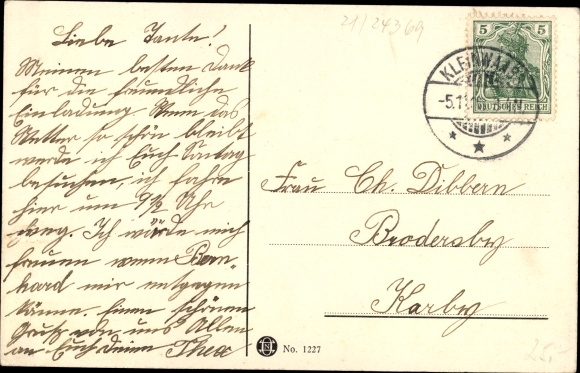 21/24369
Liebe Tante!
Meinen besten Dank
für die freundliche
Einladung. Wenn das
Wetter so schön bleibt
werde ich Euch Sontag
besuchen, ich fahre
hier um 9½ Uhr
weg. Ich würde mich
freuen wenn Bern-
hard mir entgegen
könne. Einen schönen
Gruß von uns Allen
an Euch Deine Thea
5 5
DEUTSCHES REICH
KLEINWAABS
-5.11
Frau Ch. Dibbern
Brodersby
Karby
No. 1227
25,-